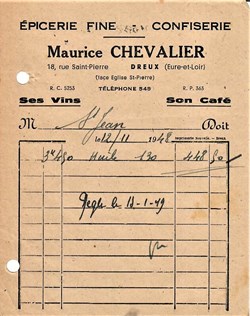 ÉPICERIE FINE CONFISERIE
Maurice CHEVALIER
18, rue Saint-Pierre DREUX (Eure-et-Loir)
(face Eglise St-Pierre)
R. C. 5253 TÉLÉPHONE 549 R. P. 365
Ses Vins Son Café
M St Jean Doit
12/11 1948
Huile 130 448 50
le 11-1-49